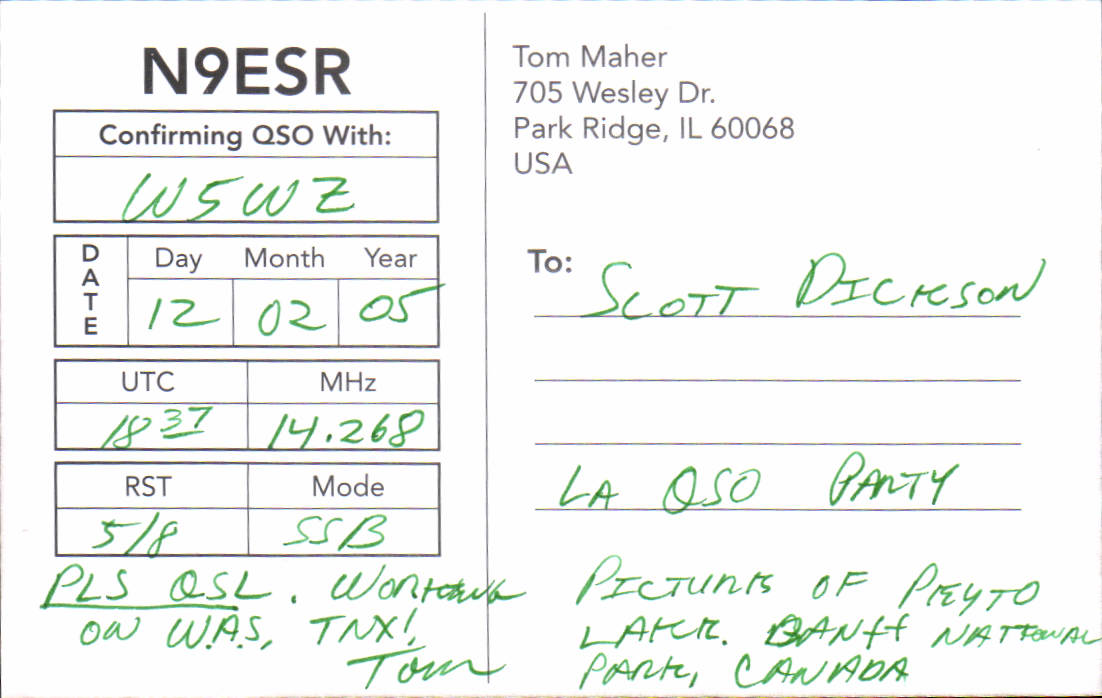 N9ESR
Confirming QSO With:
W5WZ
DATE
Day Month Year
12 02 05
UTC MHz
18 37 14.268
RST Mode
5/8 SSB
PLS QSL. WORKING
ON W.A.S, TNX!,
TOM
Tom Maher
705 Wesley Dr.
Park Ridge, IL 60068
USA
To: SCOTT DICKSON
LA QSO PARTY
PICTURE OF PEYTO
LAKE. BANFF NATIONAL
PARK, CANADA